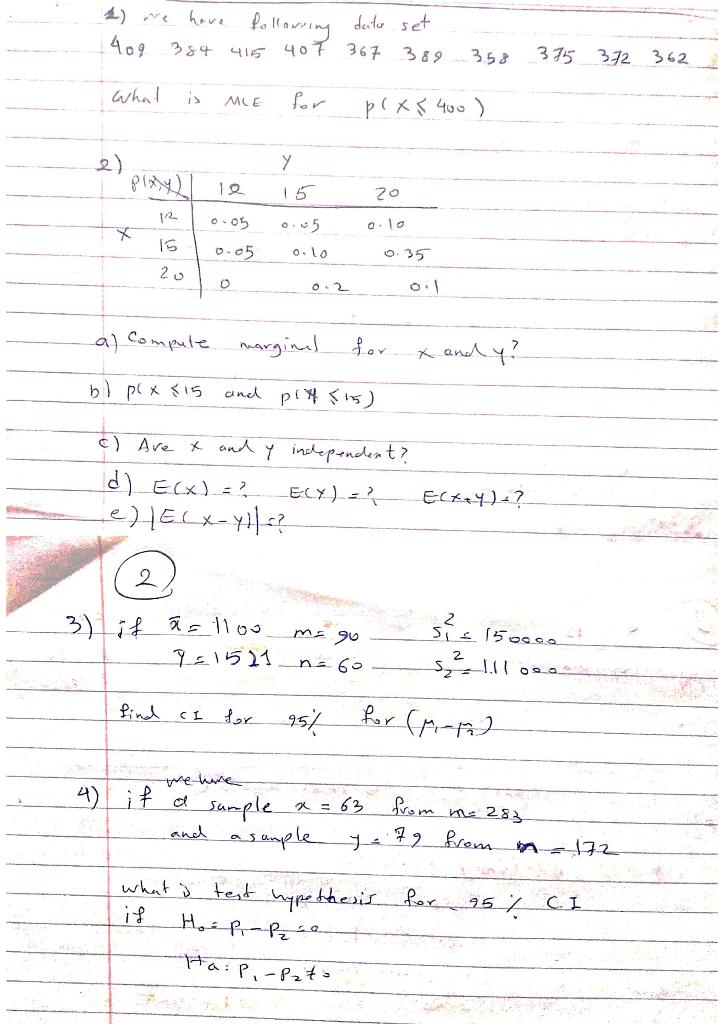 1) we have following data set
409 384 415 407 367 389 358 375 372 362
What is MLE for p(X ≤ 400)
2)
Y
p(x,y) 12 15 20
12 0.05 0.05 0.10
X 15 0.05 0.10 0.35
20 0 0.2 0.1
a) Compute marginal for x and y?
b) p(x ≤ 15 and p(Y ≤ 15)
c) Are x and y independent?
d) E(X) = ? E(Y) = ? E(X+Y) = ?
e) |E(X-Y)| = ?
2
3) if x̄ = 1100 m = 90 s₁² = 150000
ȳ = 1521 n = 60 s₂² = 111000
find CI for 95% for (μ₁-μ₂)
we have
4) if a sample x = 63 from m = 283
and a sample y = 79 from n = 172
what is test hypothesis for 95% CI
if H₀ = P₁ - P₂ = 0
Ha: P₁ - P₂ ≠ 0